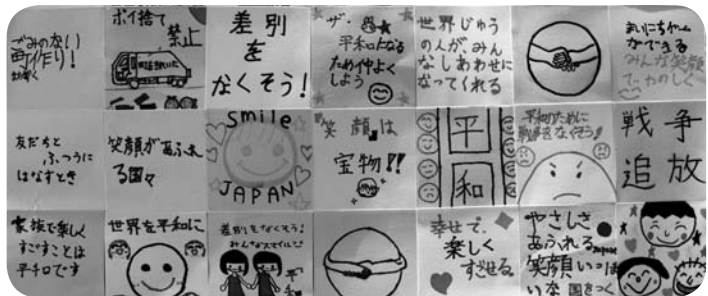 ごみのない
町作り!
ポイ捨て
禁止
差別
を
なくそう!
ザ・
平和になる
ため仲よく
しよう
世界じゅう
の人がみん
なしあわせに
なってくれる
まいにちゲーム
ができる
みんな笑顔
で、たのしく
友だちと
ふつうに
はなすとき
笑顔があふれ
る国々
smile
JAPAN
笑顔は
宝物!!
平
和
平和のために
戦争をなくそう!
戦争
追放
家族で楽しく
すごすことは
平和です
世界を平和に
差別をなくそう!
みんなスマイルで
平和
幸せで、
楽しく
すごせる
やさしさ
あふれる
笑顔いっぱ
いな国をつく